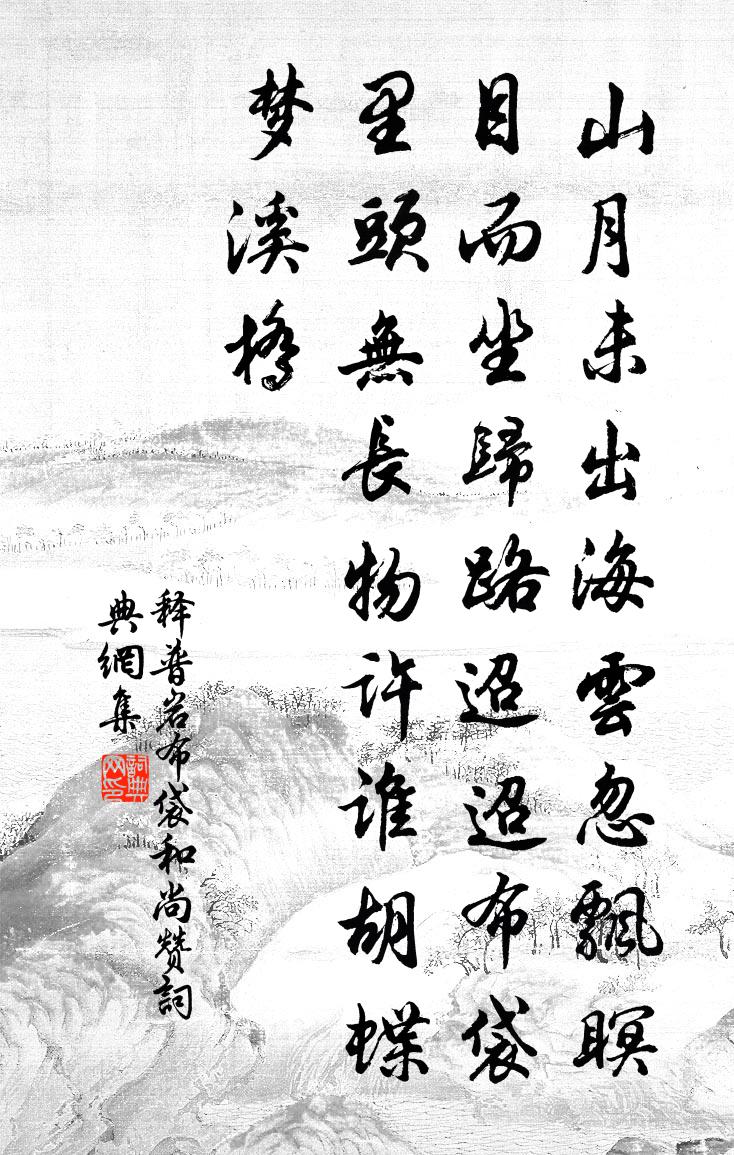 山月未出海雲忽飄瞑
目而坐歸路迢迢布袋
里頭無長物許谁胡蝶
梦溪橋
释普岩布袋和尚赞詞
典網集
詞典网印